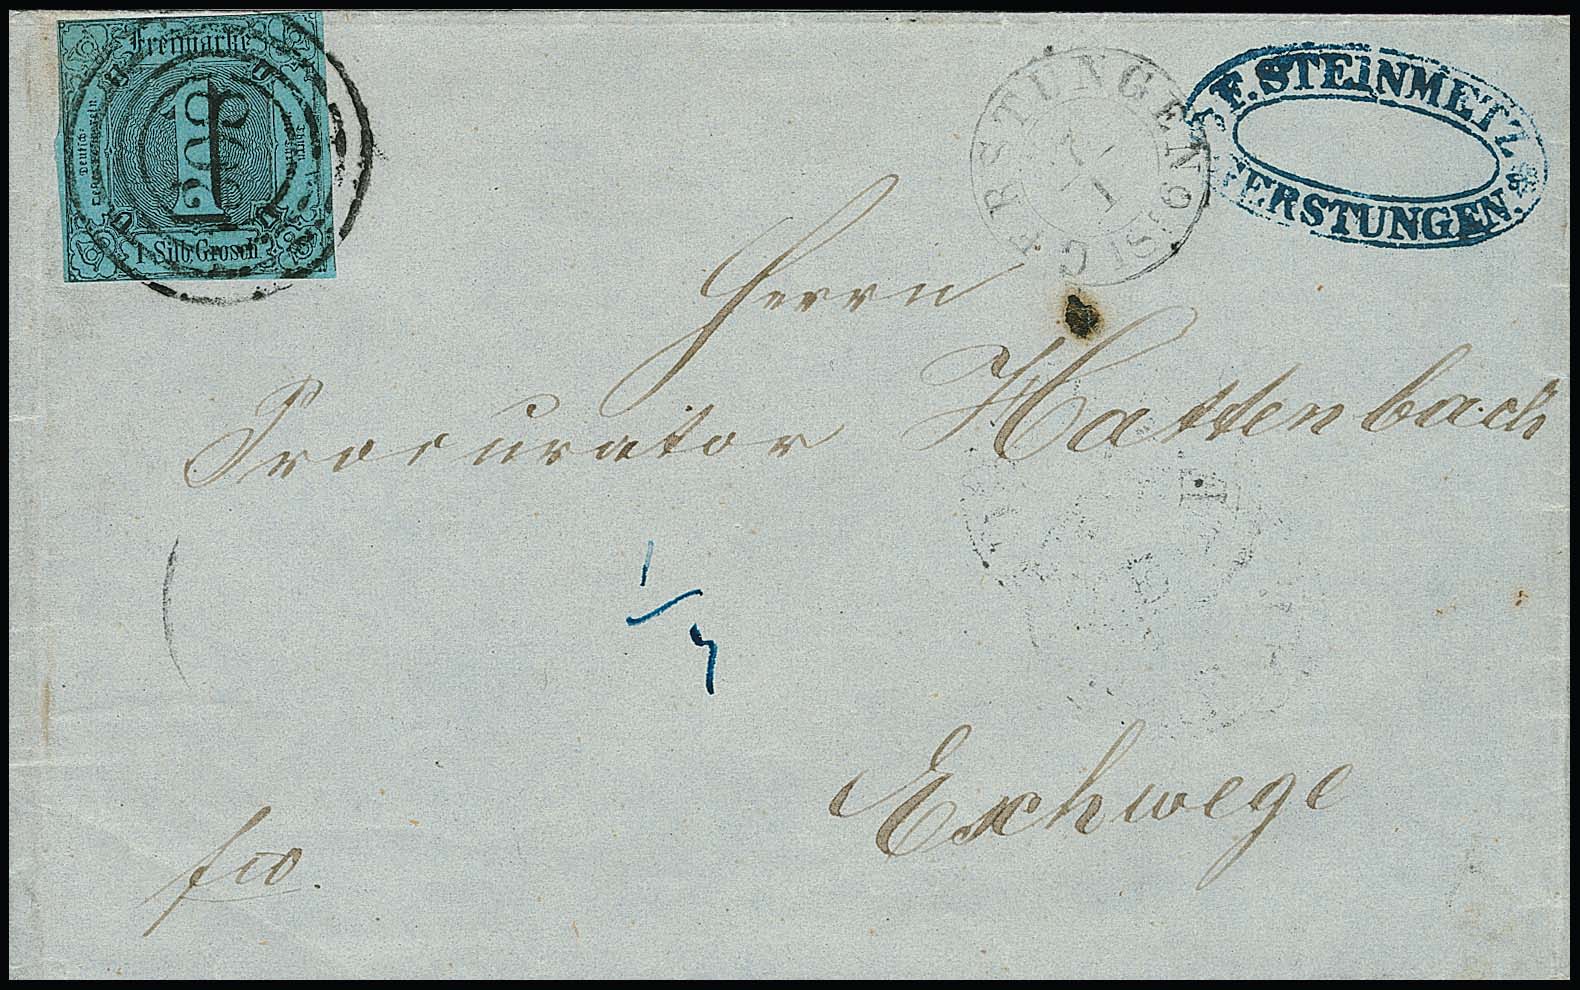 Freimarke
Deutsch-
1
1 Silb. Grosch.
GERSTUNGEN
7
1
F. STEINMETZ
GERSTUNGEN.
Herrn
Procurator Hattenbach
1/4
Eschwege
fco.